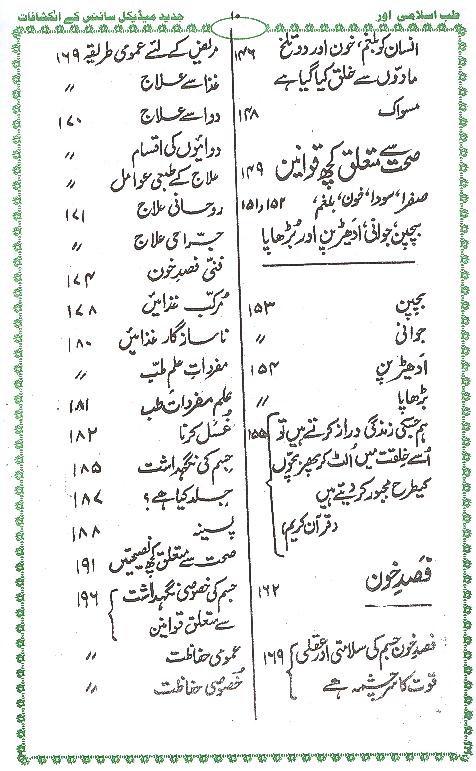 طب اسلامی اور
۱۰
جدید میڈیکل سائنس کے انکشافات
انسان کو بلغم، خون اور دو تلخ ۱۴۶
مادّوں سے خلق کیا گیا ہے
مسواک ۱۴۸
صحت سے متعلق کچھ قوانین ۱۴۹
صفرا، سودا، خون، بلغم، ۱۵۱ و ۱۵۲
بچپن، جوانی، ادھڑپن اور بُڑھاپا
بچپن ۱۵۳
جوانی ״
ادھڑپن ۱۵۴
بڑھاپا ״
ہم جسکی زندگی دراز کرتے ہیں تو ۱۵۵
اُسے خلقت میں الٹ کر پھر بچّوں
کیطرح مجبور کر دیتے ہیں
(قرآن کریم)
فصدِ خون ۱۶۲
فصدِ خون جسم کی سلامتی اور عقلی ۱۶۹
قوت کا سرچشمہ ہے
مریض کے لئے عمومی طریقہ ۱۶۹
غذا سے علاج ״
دوا سے علاج ۱۷۰
دوائیوں کی اقسام ״
علاج کے طبیعی عوامل ״
روحانی علاج ۱۷۱
جراحی علاج ״
فنّی فصدِ خون ۱۷۴
مُرکّب غذائیں ۱۷۸
ناسازگار غذائیں ۱۸۰
مفرداتِ علم طبّ ״
علم مفرداتِ طب ۱۸۱
غُسل کرنا ۱۸۲
جسم کی نگہداشت ۱۸۵
جِلد کیا ہے؟ ۱۸۷
پسینہ ۱۸۸
صحت سے متعلق کچھ نصیحتیں ۱۹۱
جسم کی خصوصی نگہداشت ۱۹۶
سے متعلق قوانین
عمومی حفاظت ״
خصُوصی حفاظت ״